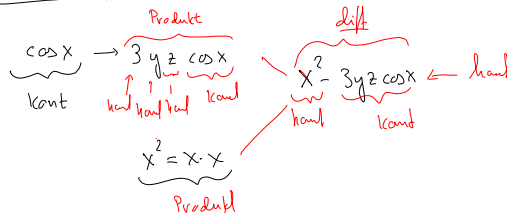 Produkt
diff
cos x → 3 y z cos x
x² - 3yz cos x ← kont
kont
kont kont kont kont
kont kont
x² = x · x
Produkt